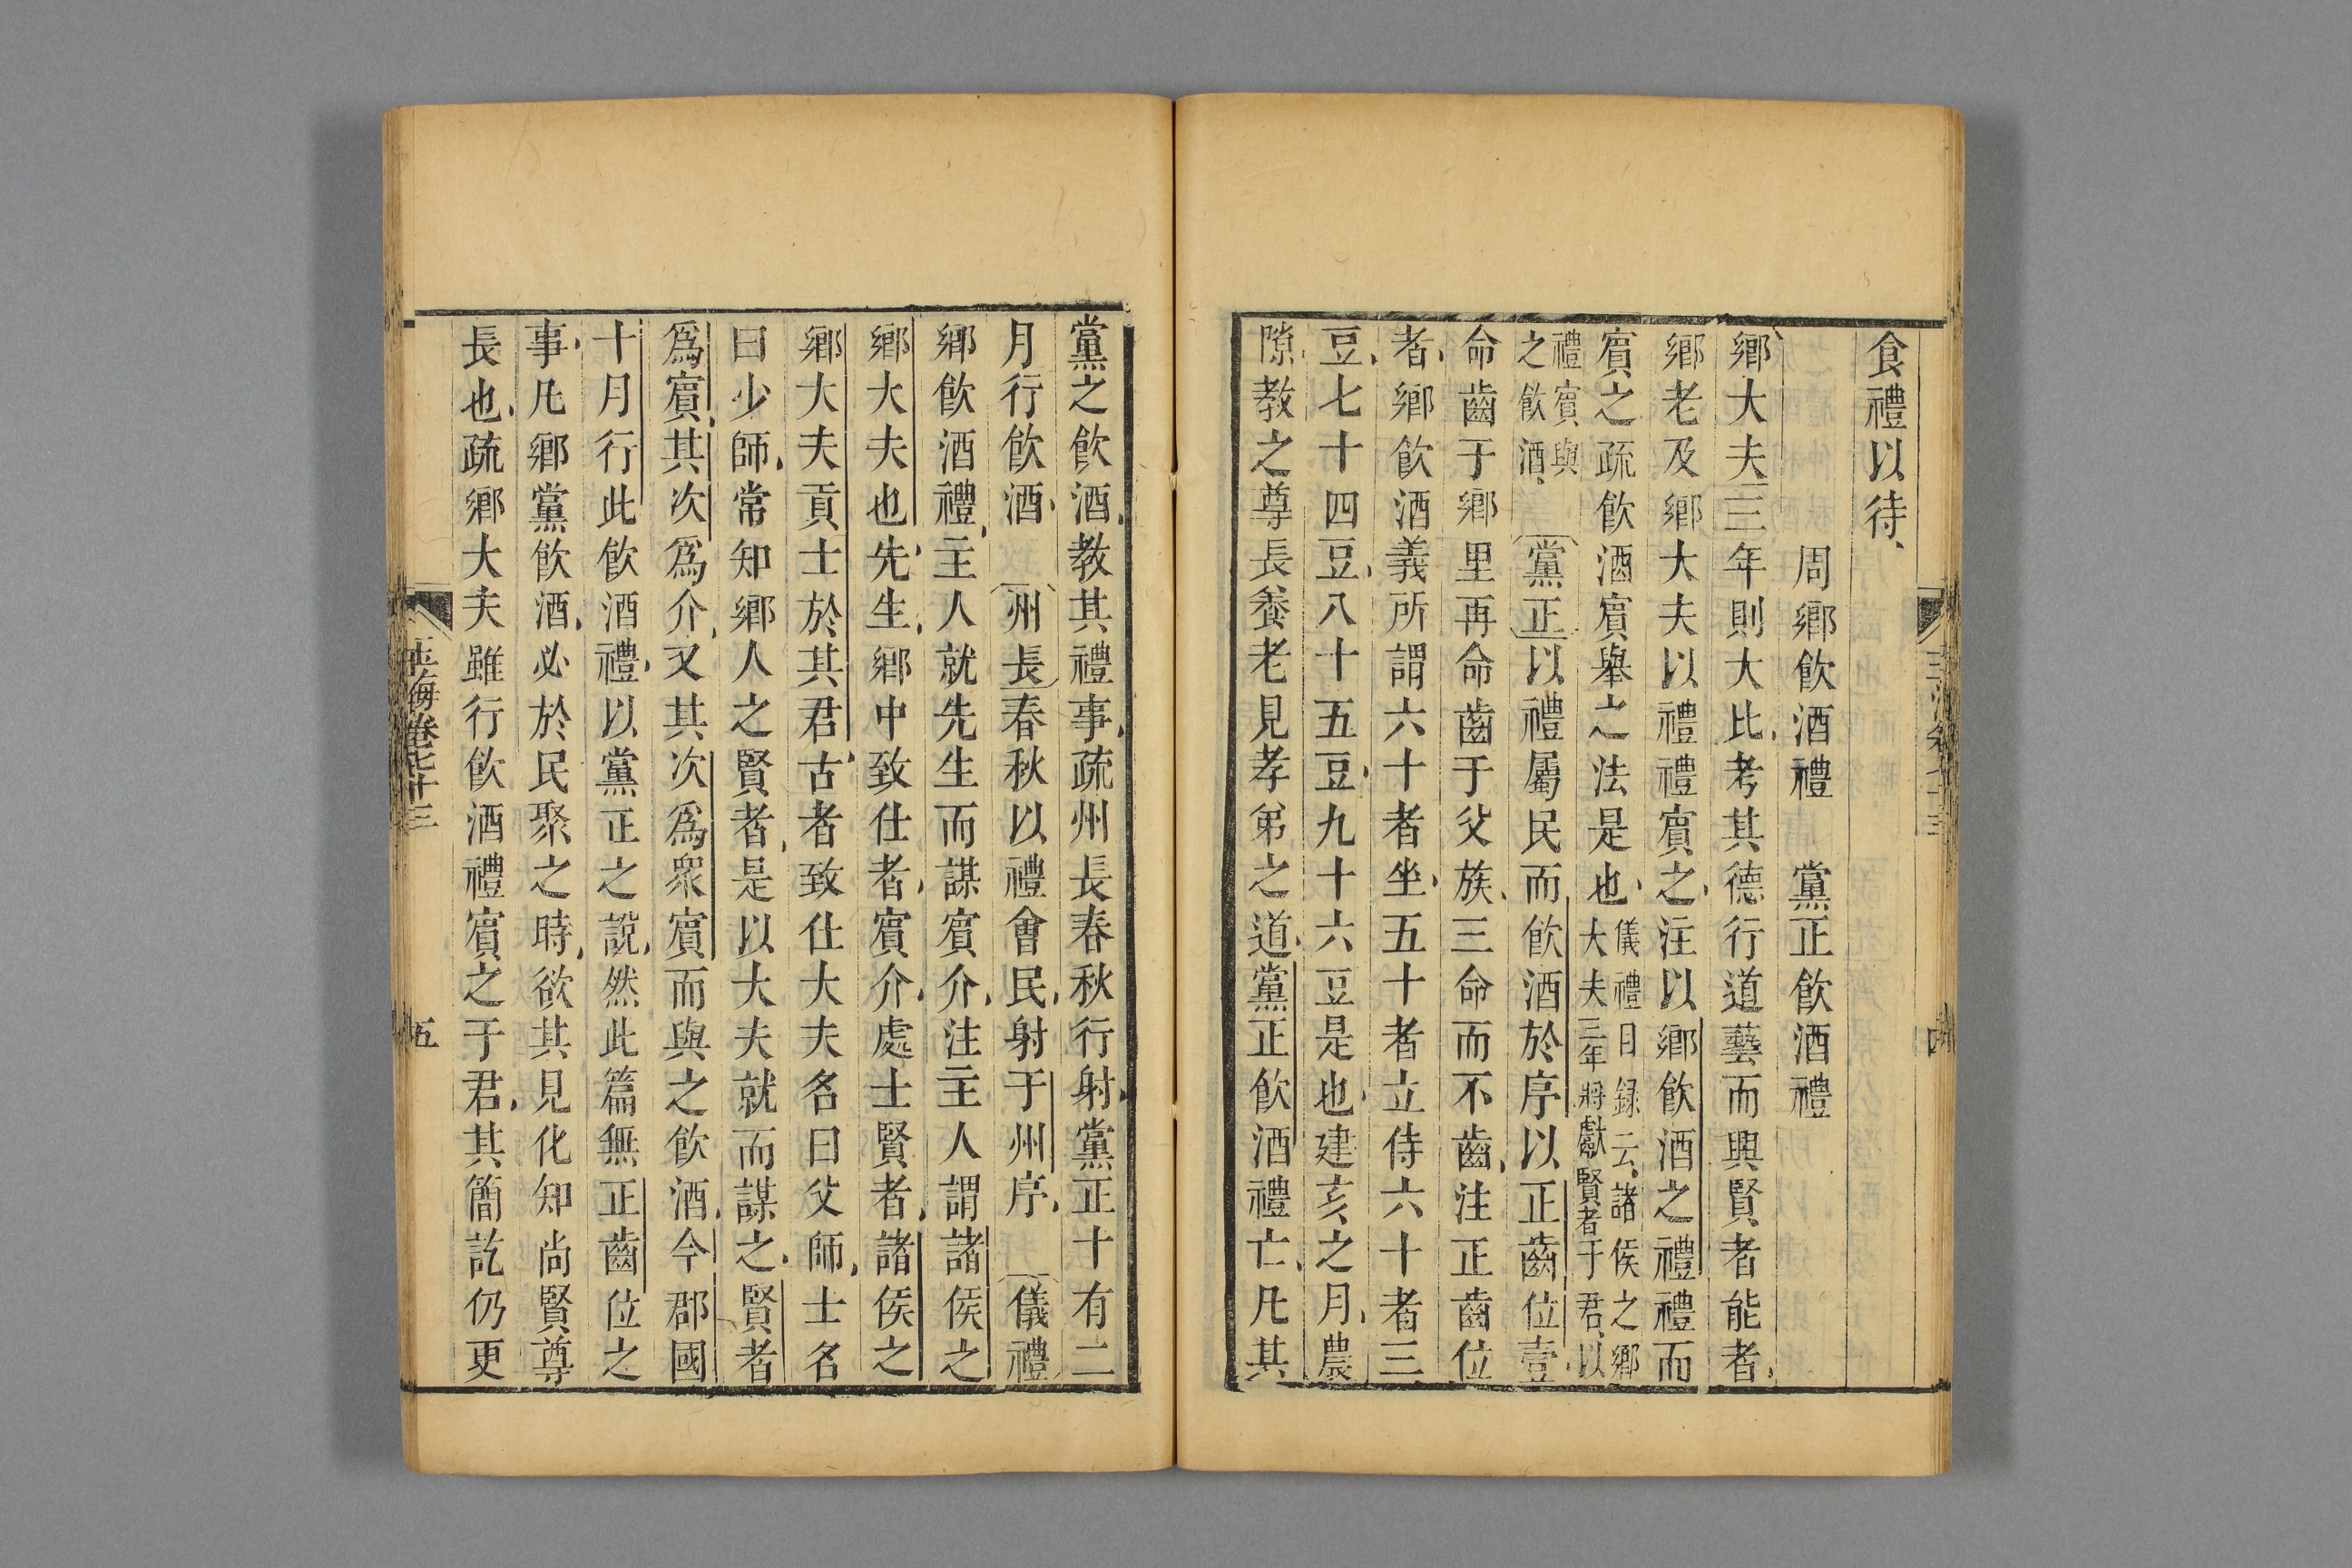 食禮以待
周鄉飲酒禮 黨正飲酒禮
鄉大夫三年則大比考其德行道藝而興賢者能者
鄉老及鄉大夫以禮禮賔之注以鄉飲酒之禮禮而
賔之疏飲酒賔舉之法是也儀禮目録云諸侯之鄉大夫三年將獻賢者于君以
禮賔與之飲酒 黨正以禮屬民而飲酒於序以正齒位壹
命齒于鄉里再命齒于父族三命而不齒注正齒位
者鄉飲酒義所謂六十者坐五十者立侍六十者三
豆七十四豆八十五豆九十六豆是也建亥之月農
隙教之尊長養老見孝弟之道黨正飲酒禮亡凡其
黨之飲酒教其禮事疏州長春秋行射黨正十有二
月行飲酒 州長春秋以禮會民射于州序 儀禮
鄉飲酒禮主人就先生而謀賔介注主人謂諸侯之
鄉大夫也先生鄉中致仕者賔介處士賢者諸侯之
鄉大夫貢士於其君古者致仕大夫名曰父師士名
曰少師常知鄉人之賢者是以大夫就而謀之賢者
爲賔其次爲介又其次爲眾賔而與之飲酒今郡國
十月行此飲酒禮以黨正之說然此篇無正齒位之
事凡鄉黨飲酒必於民聚之時欲其見化知尚賢尊
長也疏鄉大夫雖行飲酒禮賔之于君其簡訖仍更
玉海卷七十三 五